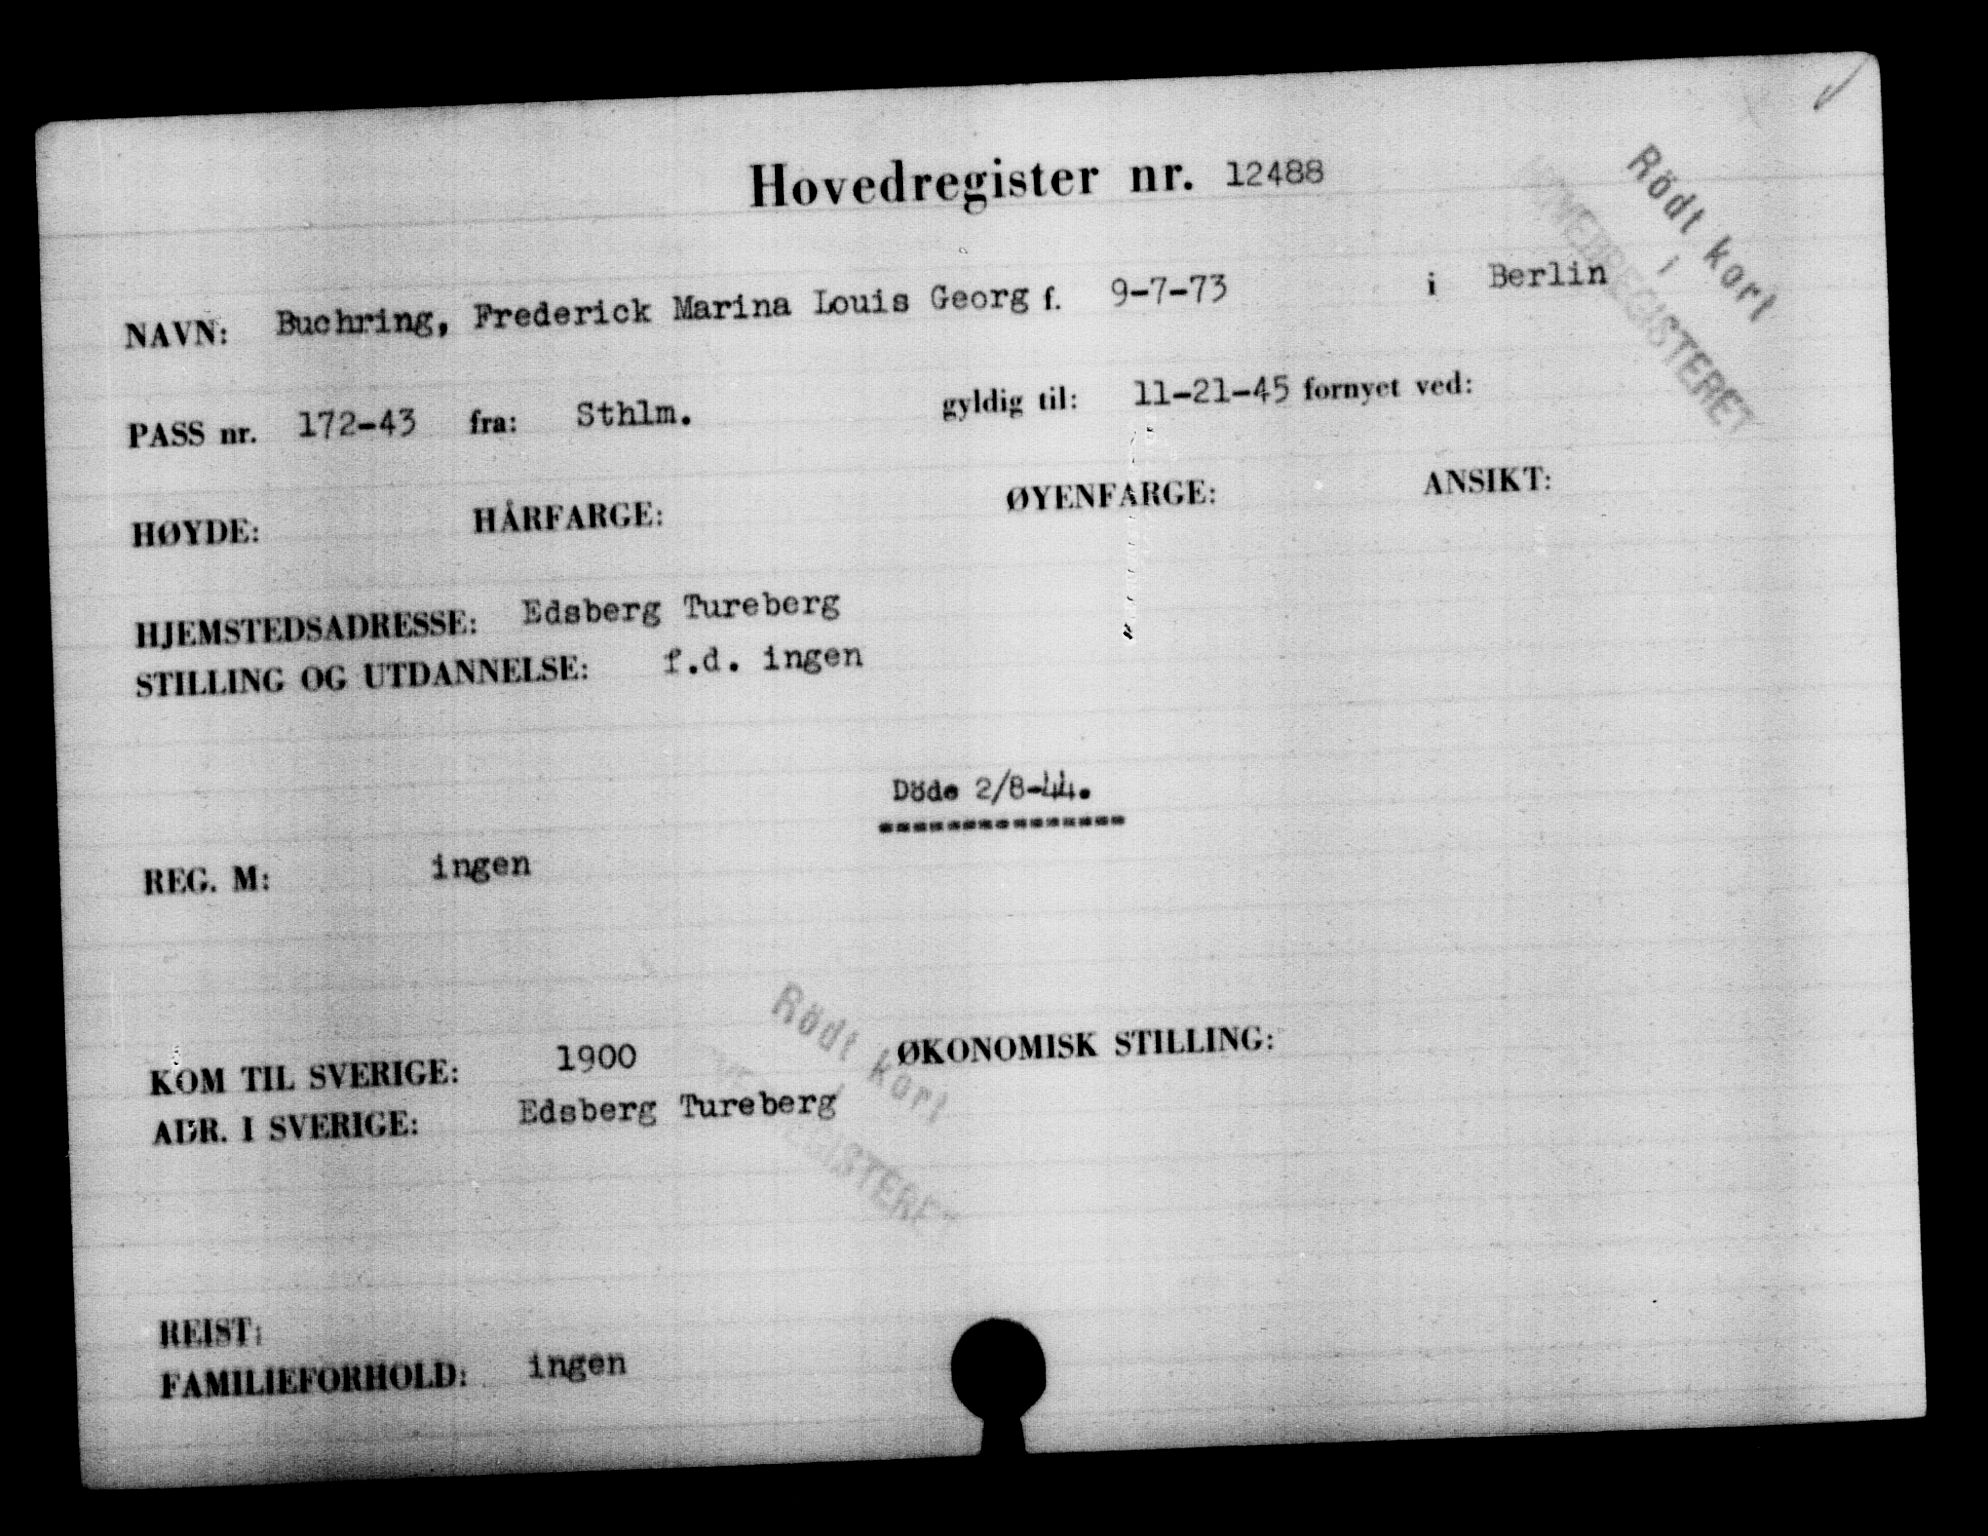 Hovedregister nr. 12488
Rödt kort
i
HOVEDREGISTERET
NAVN: Buchring, Frederick Marina Louis Georg f. 9-7-73 i Berlin
PASS nr. 172-43 fra: Sthlm. gyldig til: 11-21-45 fornyet ved:
HØYDE: HÅRFARGE: ØYENFARGE: ANSIKT:
HJEMSTEDSADRESSE: Edsberg Tureberg
STILLING OG UTDANNELSE: f.d. ingen
Döde 2/8-44.
REG. M: ingen
Rödt kort
KOM TIL SVERIGE: 1900 ØKONOMISK STILLING:
ADR. I SVERIGE: Edsberg Tureberg
REIST:
FAMILIEFORHOLD: ingen